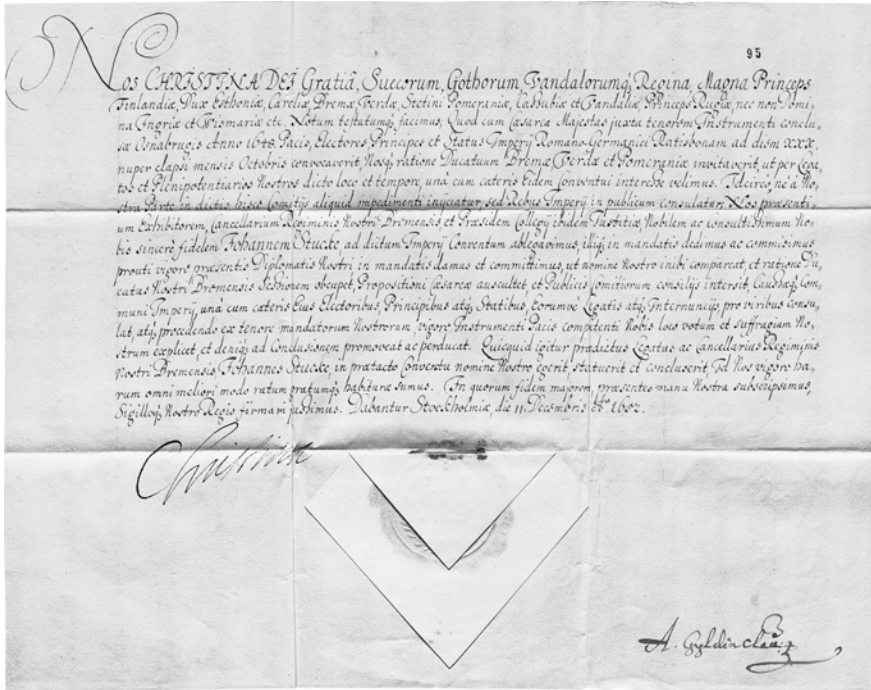 95
NOS CHRISTINA DEI Gratiâ, Suecorum, Gothorum, Vandalorumq; Regina, Magna Princeps
Finlandiæ, Dux Esthoniæ, Careliæ, Bremæ, Verdæ, Stetini Pomeraniæ, Cassubiæ et Vandaliæ, Princeps Rugiæ, nec non Domi-
na Ingriæ et Wismariæ etc. Notum testatumq; facimus, Quod cum Cæsarea Majestas juxta tenorem Instrumenti conclu-
sæ Osnabrugis Anno 1648. Pacis, Electores Principes et Status Imperij Romano-Germanici Ratisbonam ad diem XXX.
nuper elapsi mensis Octobris convocaverit, Nosq; ratione Ducatuum Bremæ Verdæ et Pomeraniæ invitaverit, ut per Lega-
tos et Plenipotentiarios Nostros dicto loco et tempore, una cum cæteris Eidem Conventui interesse velimus. Idcirco, ne à No-
stra Parte in dictis hisce Comitijs aliquid impedimenti injiciatur, sed Rebus Imperij in publicum consulatur: Nos præsenti-
um Exhibitorem, Cancellarium Regiminis Nostri Bremensis et Præsidem Collegij ibidem Justitiæ, Nobilem ac consultissimum No-
bis sincerè fidelem Johannem Stucke ad dictum Imperij Conventum ablegavimus, illiq; in mandatis dedimus ac commisimus
prouti vigore præsentis Diplomatis Nostri in mandatis damus et committimus, ut nomine Nostro inibi compareat, et ratione Du-
catus Nostri Bremensis Sessionem occupet, Propositioni Cæsareæ auscultet, et Publicis Comitiorum consilijs intersit, Causasq; Com-
muni Imperij, una cum cæteris Eius Electoribus, Principibus atq; Statibus, Eorumvè Legatis atq; Internuncijs, pro viribus consu-
lat, atq; procedendo ex tenore mandatorum Nostrorum, vigore Instrumenti Pacis competenti Nobis loco votum et suffragium No-
strum explicet, et deniq; ad Conclusionem promoveat ac perducat. Quicquid igitur prædictus Legatus ac Cancellarius Regiminis
Nostri Bremensis Johannes Stucke, in prætacto Conventu nomine Nostro egerit, statuerit et concluserit, Id Nos vigore ha-
rum omni meliori modo ratum gratumq; habituræ sumus. In quorum fidem majorem, præsentes manu Nostra subscripsimus,
Sigilloq; Nostro Regio firmari jussimus. Dabantur Stockholmiæ, die 11. Decembris Ao 1652.
Christina
A. Gyldenclau